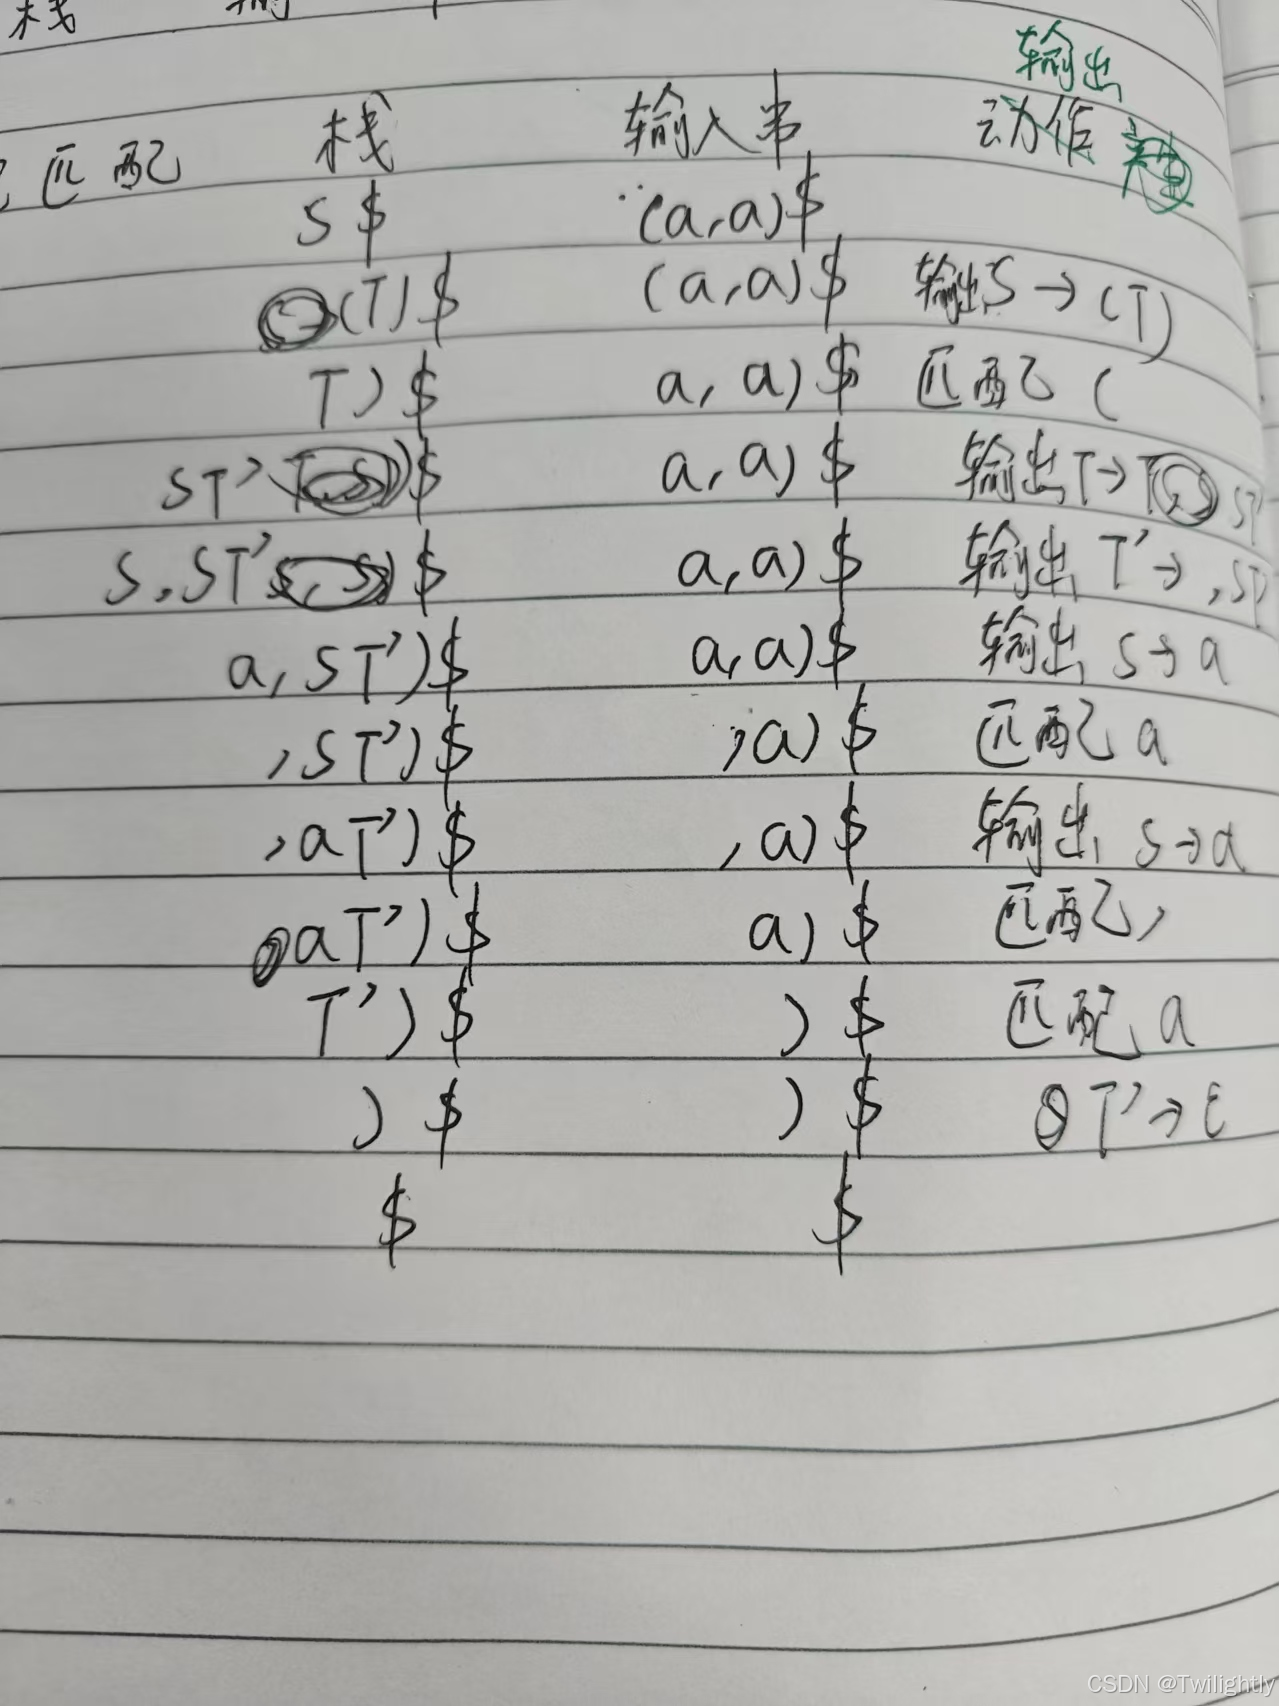 栈
输出
匹配 栈 输入串 动作
S $ (a,a)$
(T)$ (a,a)$ 输出S→(T)
T)$ a,a)$ 匹配(
ST')$ a,a)$ 输出T→ST'
S,ST')$ a,a)$ 输出T'→,ST'
a,ST')$ a,a)$ 输出S→a
,ST')$ ,a)$ 匹配a
,aT')$ ,a)$ 输出S→a
aT')$ a)$ 匹配,
T')$ )$ 匹配a
)$ )$ T'→ε
$ $
CSDN @Twilightly